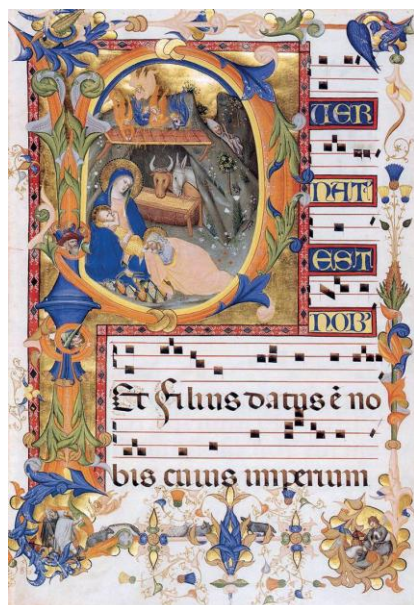 UER
NAT
EST
NOB'
Et filius datus ē no
bis cuius imperium